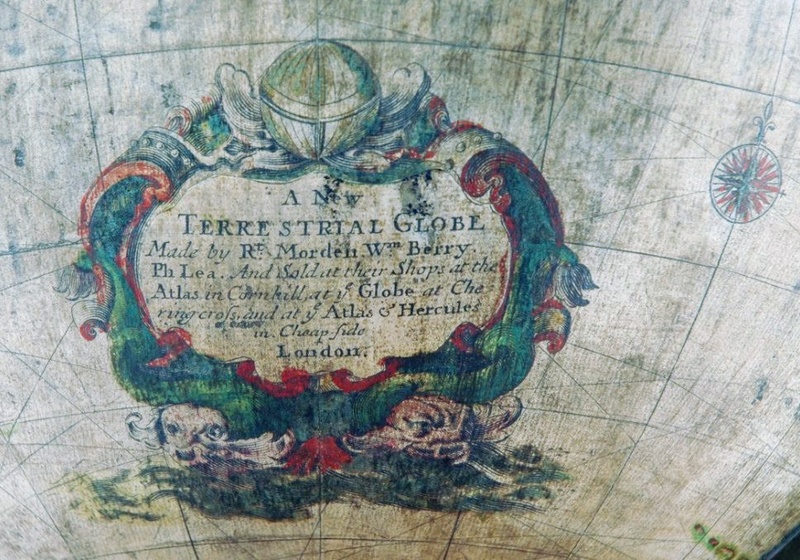 A New
TERRESTRIAL GLOBE
Made by Rt. Morden Wm Berry.
Ph Lea. And Sold at their Shops at the
Atlas in Cornhill, at ye Globe at Che
ringcross, and at ye Atlas & Hercules
in Cheap-side
London.